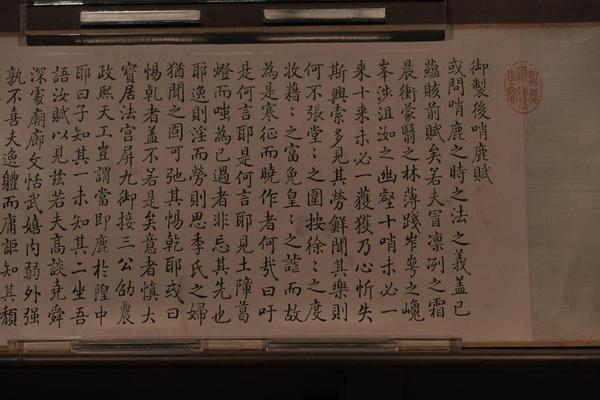 御製後哨鹿賦
或問哨鹿之時之法之義蓋已
蘊賅前賦矣若夫冒凛冽之霜
晨衝蒙翳之林薄踐岝崿之巉
岑涉沮洳之幽壑十哨未必一
來十來未必一獲獲乃心忻失
斯興索多見其勞鮮聞其樂則
何不張堂〻之圍按徐〻之度
妝藉〻之富免皇〻之䜅而故
為是寒征而曉作者何哉曰吁
是何言耶是何言耶見土障葛
燈而嗤為已過者非忘其先也
耶逸則淫而勞則思季氏之婦
猶聞之固可弛其惕乾耶或曰
惕乾者蓋不若是矣意者慎大
寶居法宫屏九御接三公劭農
政熙天工豈謂當即鹿於隍中
耶曰子知其一未知其二坐吾
語汝賦以見玆若夫高談堯舜
深處廟廊文恬武嬉内弱外强
孰不喜夫逸軆而庸詎知其頹